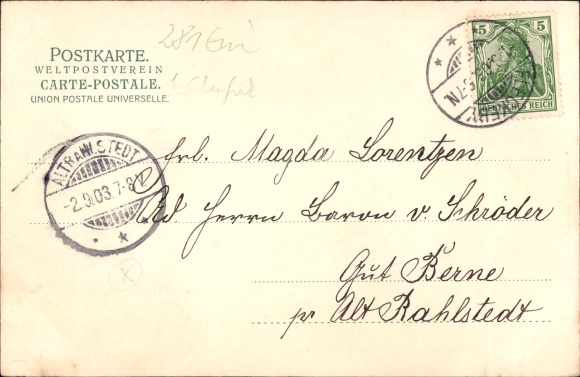 POSTKARTE.
WELTPOSTVEREIN
CARTE-POSTALE.
UNION POSTALE UNIVERSELLE.
5 5
DEUTSCHES REICH
ALTRAHLSTEDT
-2.9.03.7-8
Frl. Magda Lorentzen
Ad Herrn Baron v. Schröder
Gut Berne
pr Alt Rahlstedt